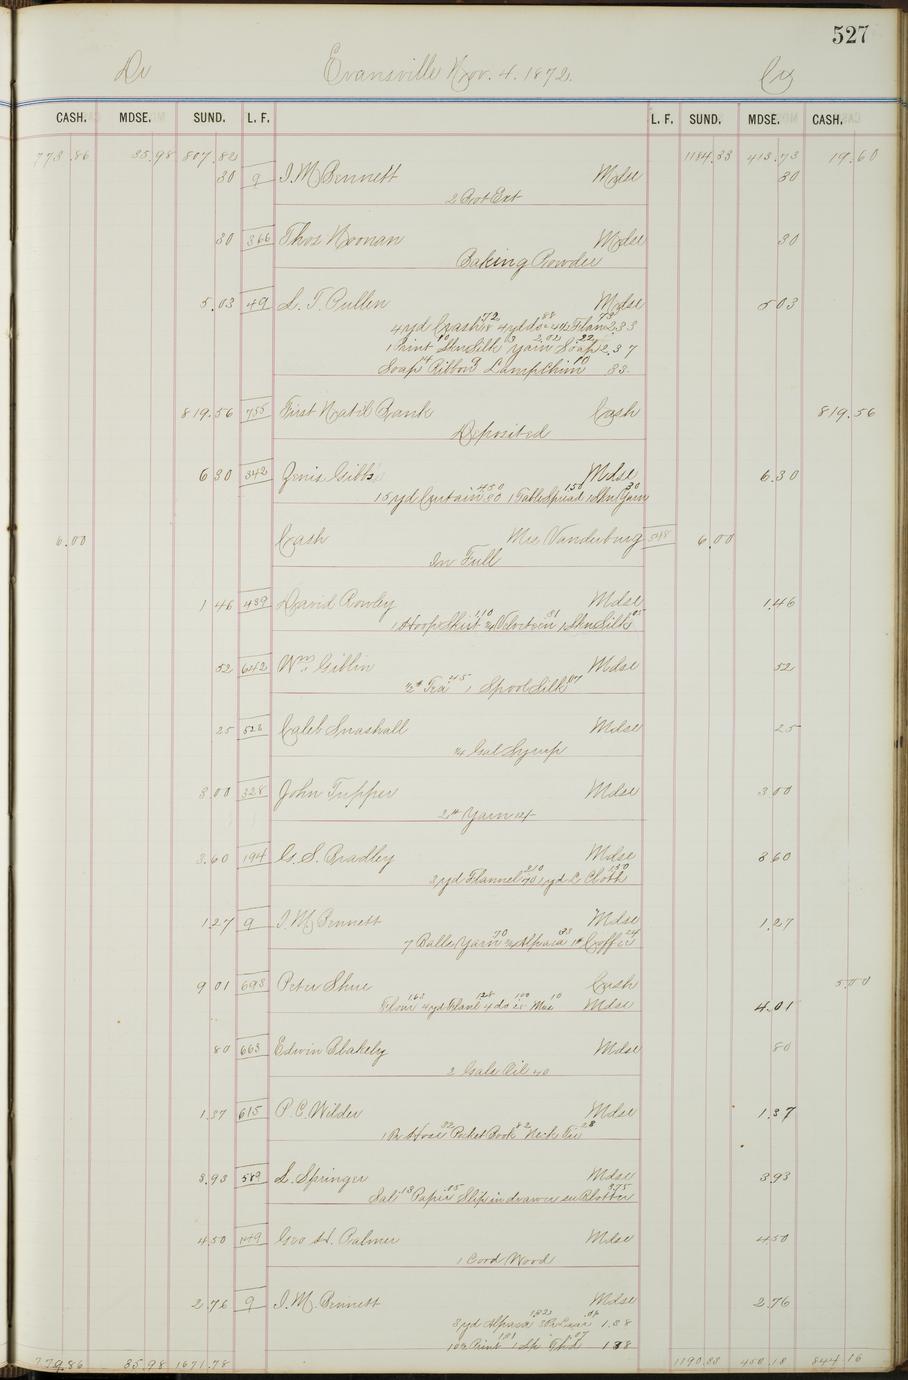 527
Dr Evansville Nov. 4. 1872. Cr
CASH. MDSE. SUND. L. F. L. F. SUND. MDSE. CASH.
773.86 35.98 807.82 1184.33 413.73 19.60
30 9 I. M. Bennett Mdse 30
2 Bot Ext
30 366 Thos Noonan Mdse 30
Baking Powder
5.03 49 L. T. Pullen Mdse 5 03
4 yd Crash 18 72 4 yd do 88 4 1/2 Flan 73 2.33
1 Print 10 Skn Silk 03 Yarn 2.02 Soap 22 2.37
Soap 14 Ribbon 9 Lamp Chim 10 33
819.56 755 First Nat'l Bank Cash 819.56
Deposited
6 30 342 Jenis Gibbs Mdse 6.30
15 yd Curtain 30 4 50 1 Table Spread 1 50 1 Skn Yarn 30
6.00 Cash Mrs Vanderburg 548 6.00
In Full
1 46 439 David Rowley Mdse 1.46
1 Hoop Skirt 1 10 1/4 Velveteen 31 1 Skn Silk 05
52 642 Wm Giblin Mdse 52
1/2 # Tea 45 1 Spool Silk 07
25 528 Caleb Snashall Mdse 25
1/4 Gal Syrup
3.00 328 John Tupper Mdse 3.00
2 # Yarn 12/-
3.60 194 G. S. Bradley Mdse 3 60
3 yd Flannel 70 2 10 1 yd L Cloth 1 50
1 27 9 I. M. Bennett Mdse 1.27
7 Balls Yarn 70 3/4 Alpaca 33 1 # Coffee 24
9 01 693 Peter Shue Cash 5.00
Flour 1.63 4 yd Flanl 1 28 4 do 25 1 00 Mus 10 Mdse 4.01
80 663 Edwin Blakely Mdse 80
2 Gals Oil 40
1.37 615 P. C. Wilder Mdse 1.37
1 Pr Hose 32 Pocket Book 42 Neck Tie 28
3.93 589 L. Springer Mdse 3.93
Sal 13 Paper 05 Slip in drawer see Blotter 3.75
4.50 149 Geo H. Palmer Mdse 4.50
1 Cord Wood
2.76 9 I. M. Bennett Mdse 2.76
3 yd Alpaca 1.32 3 Pr Lace .06 1.38
10 1/2 Print 1 31 1 Sp Th'd 07 1 38
779.86 35.98 1671.78 1190.33 450.18 844.16